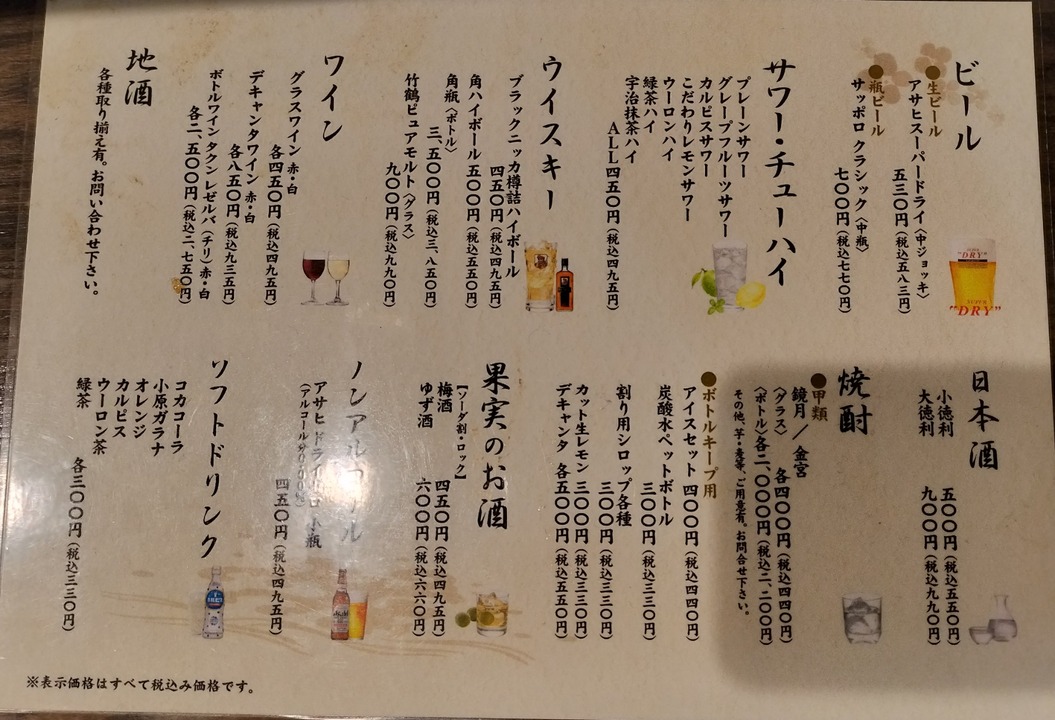 ビール
●生ビール
アサヒスーパードライ〈中ジョッキ〉
五三〇円(税込五八三円)
●瓶ビール
サッポロ クラシック〈中瓶〉
七〇〇円(税込七七〇円)
SUPER
"DRY"
SUPER
"DRY"
サワー・チューハイ
プレーンサワー
グレープフルーツサワー
カルピスサワー
こだわりレモンサワー
ウーロンハイ
緑茶ハイ
宇治抹茶ハイ
ALL四五〇円(税込四九五円)
ウイスキー
ブラックニッカ樽詰ハイボール
四五〇円(税込四九五円)
角ハイボール 五〇〇円(税込五五〇円)
角瓶〈ボトル〉
三、五〇〇円(税込三、八五〇円)
竹鶴ピュアモルト〈グラス〉
九〇〇円(税込九九〇円)
ワイン
グラスワイン 赤・白
各四五〇円(税込四九五円)
デキャンタワイン 赤・白
各八五〇円(税込九三五円)
ボトルワイン タクンレゼルバ(チリ)赤・白
各二、五〇〇円(税込二、七五〇円)
地酒
各種取り揃え有。お問い合わせ下さい。
日本酒
小徳利 五〇〇円(税込五五〇円)
大徳利 九〇〇円(税込九九〇円)
焼酎
●甲類
鏡月／金宮
〈グラス〉 各四〇〇円(税込四四〇円)
〈ボトル〉各二、〇〇〇円(税込二、二〇〇円)
その他、芋・麦等、ご用意有。お問合せ下さい。
●ボトルキープ用
アイスセット 四〇〇円(税込四四〇円)
炭酸水ペットボトル
三〇〇円(税込三三〇円)
割り用シロップ各種
三〇〇円(税込三三〇円)
カット生レモン 三〇〇円(税込三三〇円)
デキャンタ 各五〇〇円(税込五五〇円)
果実のお酒
【ソーダ割・ロック】
梅酒 四五〇円(税込四九五円)
ゆず酒 六〇〇円(税込六六〇円)
ノンアルコール
アサヒドライゼロ小瓶
(アルコール分0.00%)
四五〇円(税込四九五円)
ソフトドリンク
コカコーラ
小原ガラナ
オレンジ
カルピス
ウーロン茶
緑茶
各三〇〇円(税込三三〇円)
※表示価格はすべて税込み価格です。